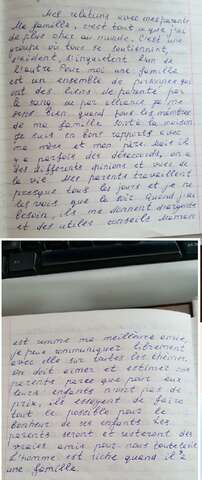 Mes relations avec mes parents
Ma famille, c'est tout ce que j'ai
de plus cher au monde. C'est un
groupe où tous se soutiennent,
s'aident, s'inquiètent l'un de
l'autre. Pour moi une famille
est un ensemble de personnes qui
ont des liens de parenté par
le sang ou par alliance. Je me
sens bien quand tous les membres
de ma famille sont à la maison
Je suis en bons rapports avec
ma mère et mon père. Mais il
y a parfois des désaccords, on a
des différents opinions et vues de
la vie. Mes parents travaillent
presque tous les jours et je ne
les vois que le soir. Quand j'ai
besoin, ils me donnent d'argent
et des utiles conseils. Maman
est comme ma meilleure amie,
je peux communiquer librement
avec elle sur toutes les thèmes.
On doit aimer et estimer ses
parents parce que pour eux
leurs enfants n'ont pas de
prix, ils essayent de faire
tout le possible pour le
bonheur de ses enfants. Les
parents seront et resteront des
vrais amis pour nous toute la vie
L'homme est riche quand il a
une famille.